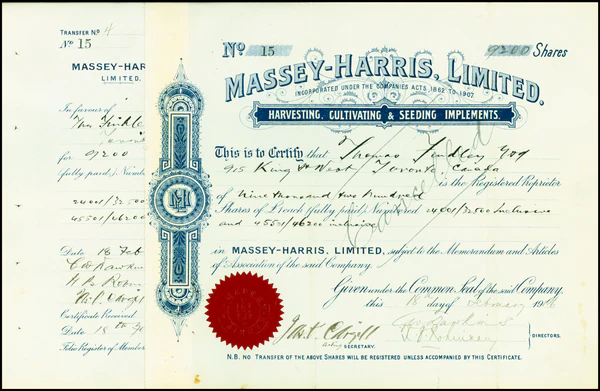 TRANSFER Nº 4
Nº 15
MASSEY-HAR
LIMITED.
In favour of
for 9200
(fully paid,) Numb
24001/32500
45501/46200
Date 18 Feb
Certificate Received
Date 18th
Folio Register of Member
Nº 15 9200 Shares
MASSEY-HARRIS, LIMITED.
INCORPORATED UNDER THE COMPANIES ACTS, 1862 TO 1907
HARVESTING, CULTIVATING & SEEDING IMPLEMENTS.
This is to Certify that Thomas Findley
915 King St West Toronto Canada
is the Registered Proprietor
of Nine thousand two hundred
Shares of £1 each (fully paid) Numbered 24001/32500 Inclusive
and 45501/46200 inclusive
Cancelled
in MASSEY-HARRIS, LIMITED, subject to the Memorandum and Articles
of Association of the said Company.
Given under the Common Seal of the said Company,
this 18th day of February 19
DIRECTORS.
acting SECRETARY.
N.B. NO TRANSFER OF THE ABOVE SHARES WILL BE REGISTERED UNLESS ACCOMPANIED BY THIS CERTIFICATE.